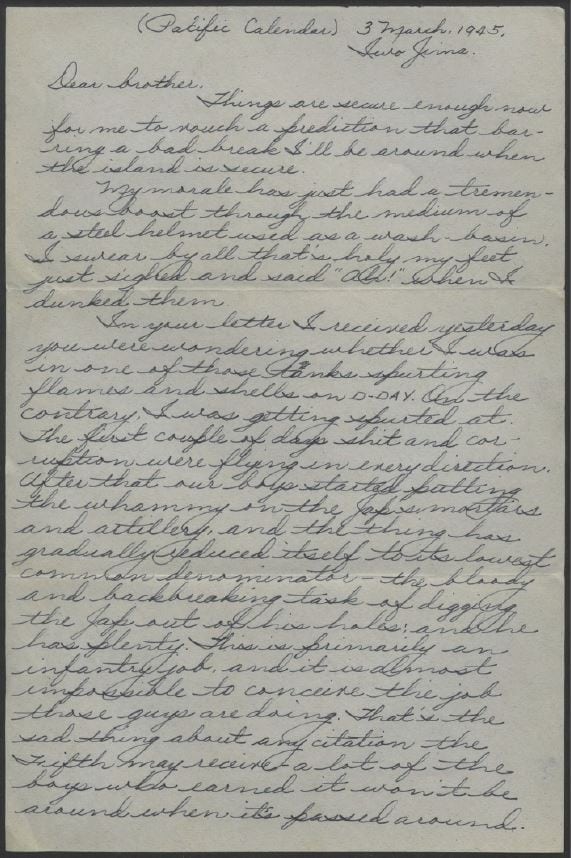 (Pacific Calendar) 3 March, 1945.
Iwo Jima.
Dear brother,
Things are secure enough now
for me to vouch a prediction that bar-
ring a bad break I'll be around when
the island is secure.
My morale has just had a tremen-
dous boost through the medium of
a steel helmet used as a wash-basin.
I swear by all that's holy my feet
just sighed and said "Ah!" when I
dunked them
In your letter I received yesterday
you were wondering whether I was
in one of those tanks spurting
flames and shells on D-DAY. On the
contrary, I was getting spurted at.
The first couple of days shit and cor-
ruption were flying in every direction.
After that our boys started putting
the whammy on the Jap's mortars
and artillery, and the thing has
gradually reduced itself to its lowest
common denominator - the bloody
and backbreaking task of digging
the Jap out of his holes; and he
has plenty. This is primarily an
infantry job, and it is almost
impossible to conceive the job
those guys are doing. That's the
sad thing about any citation the
Fifth may receive - a lot of the
boys who earned it won't be
around when it's passed around.